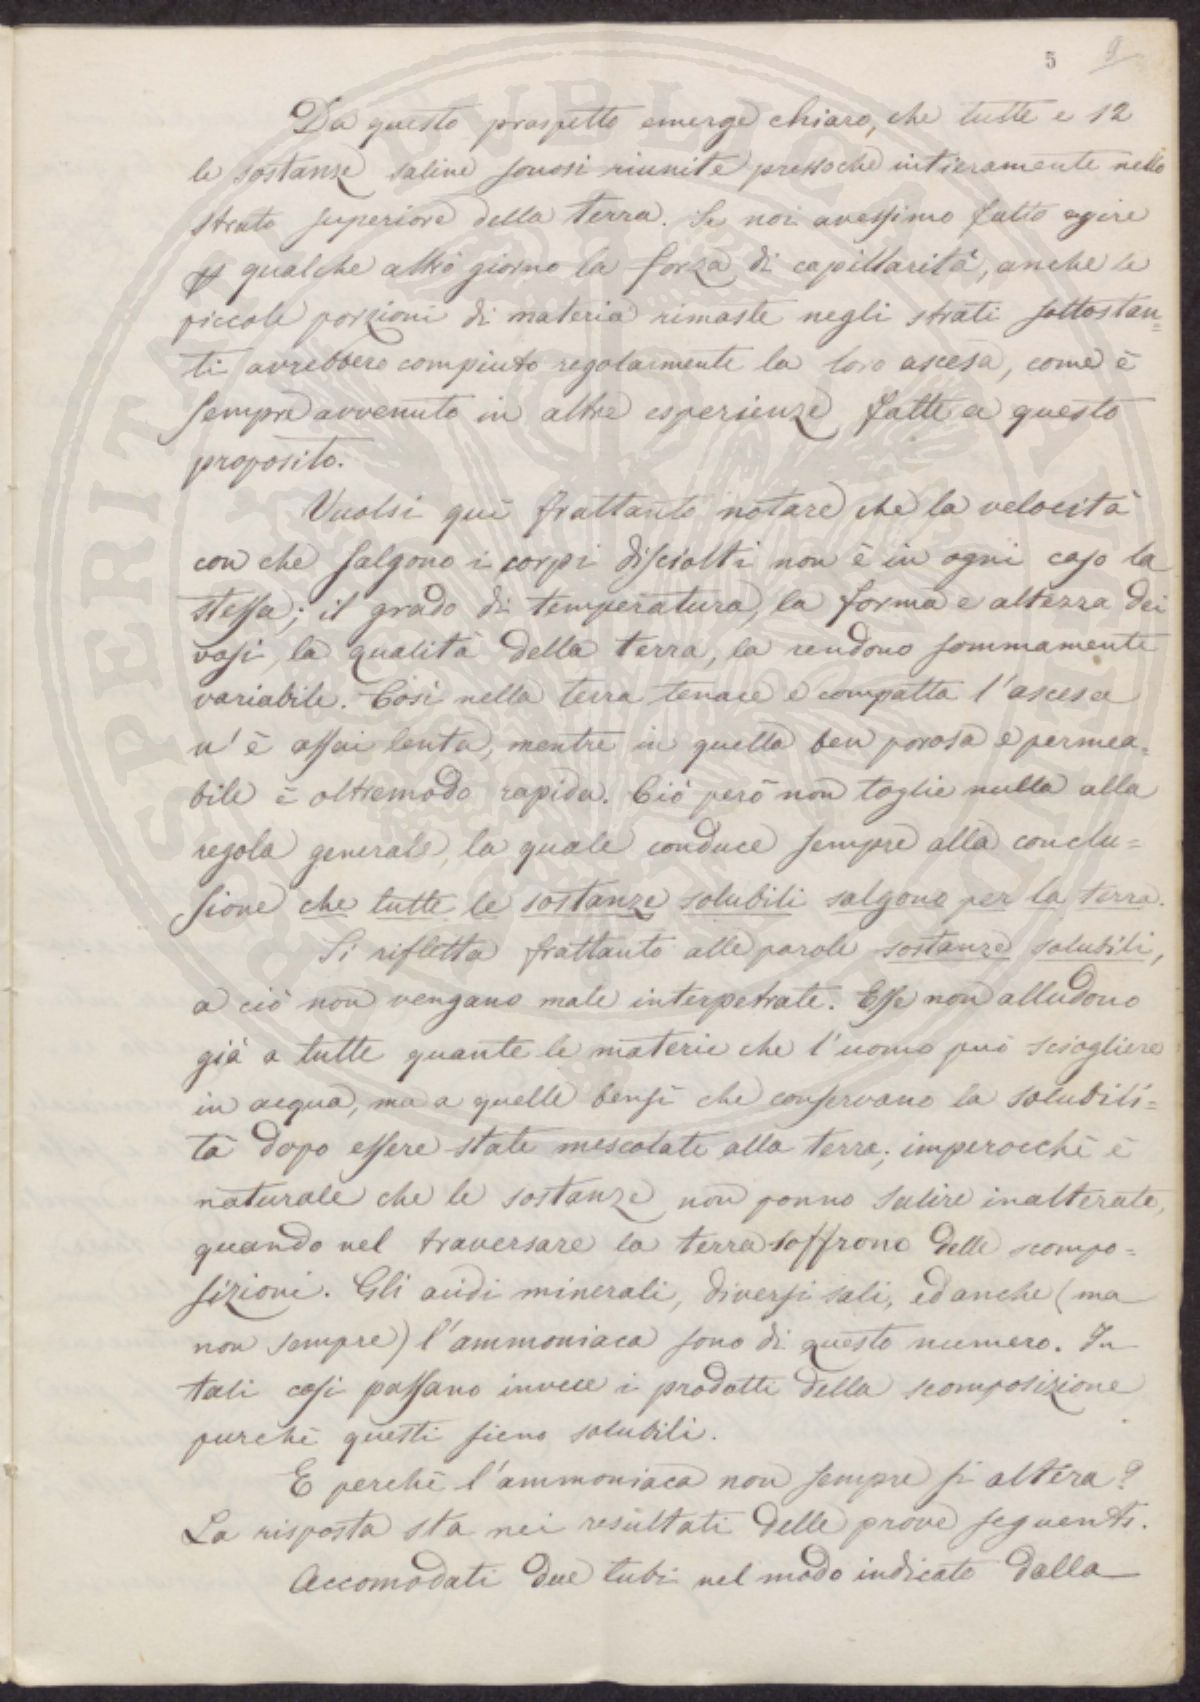 5 9
Da questo prospetto emerge chiaro, che tutte e 12
le sostanze saline sonosi riunite pressochè intieramente nello
strato superiore della terra. Se noi avessimo fatto agire
qualche altro giorno la forza di capillarità, anche le
piccole porzioni di materia rimaste negli strati sottostan=
ti avrebbero compiuto regolarmente la loro ascesa, come è
sempre avvenuto in altre esperienze fatte a questo
proposito.
Vuolsi quì frattanto notare che la velocità
con che salgono i corpi disciolti non è in ogni caso la
stessa; il grado di temperatura, la forma e altezza dei
vasi, la qualità della terra, la rendono sommamente
variabile. Così nella terra tenace e compatta l'ascesa
n'è assai lenta, mentre in quella ben porosa e permea=
bile è oltremodo rapida. Ciò però non toglie nulla alla
regola generale, la quale conduce sempre alla conclu=
sione che tutte le sostanze solubili salgono per la terra.
Si rifletta frattanto alle parole sostanze solubili,
a ciò non vengano male interpetrate. Esse non alludono
già a tutte quante le materie che l'uomo può sciogliere
in acqua, ma a quelle bensì che conservano la solubili=
tà dopo essere state mescolate alla terra; imperocchè è
naturale che le sostanze non ponno salire inalterate,
quando nel traversare la terra soffrono delle scompo=
sizioni. Gli acidi minerali, diversi sali, ed anche (ma
non sempre) l'ammoniaca sono di questo numero. In
tali casi passano invece i prodotti della scomposizione
purchè questi sieno solubili.
E perchè l'ammoniaca non sempre si altera?
La risposta sta nei resultati delle prove seguenti.
Accomodati due tubi nel modo indicato dalla